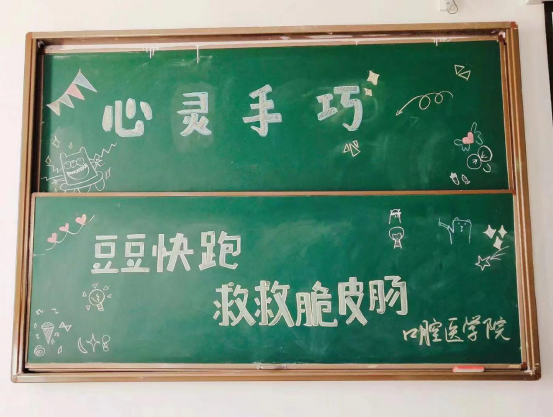 心灵手巧
豆豆快跑
救救脆皮肠
口腔医学院